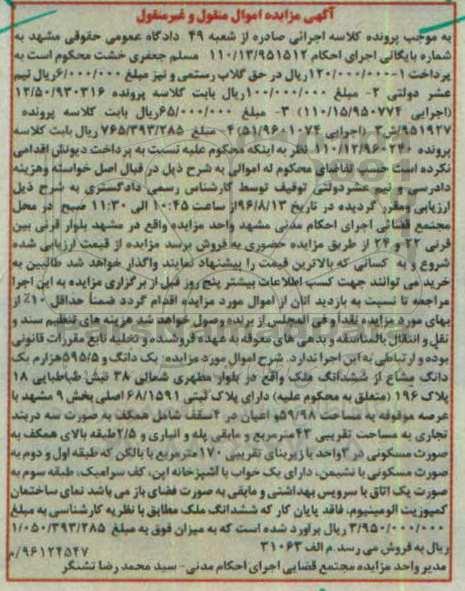 آگهی مزایده اموال منقول و غیرمنقول
به موجب پرونده کلاسه اجرائی صادره از شعبه ۴۹ دادگاه عمومی حقوقی مشهد به
شماره بایگانی اجرای احکام ۱۱۰/۱۳/۹۵۱۵۱۲ مسلم جعفری خشت محکوم است به
پرداخت ۱-۱۲۰/۰۰۰/۰۰۰ریال در حق گلاب رستمی و نیز مبلغ ۶/۰۰۰/۰۰۰ریال نیم
عشر دولتی ۲- مبلغ ۱۰۰/۰۰۰/۰۰۰ریال بابت کلاسه پرونده ۱۳/۵۰/۹۳۰۳۱۶
(اجرایی ۱۱۰/۱۵/۹۵۰۷۷۴) ۳- مبلغ ۶۵/۰۰۰/۰۰۰ریال بابت کلاسه پرونده
۹۵۱۹۲۷/ش۳(اجرایی ۵۱/۹۶۰۱۰۷۴) ۴- مبلغ ۷۶۵/۳۹۳/۲۸۵ ریال بابت کلاسه
پرونده ۱۱۰/۱۲/۹۶۰۲۴۰ نظر به اینکه محکوم علیه نسبت به پرداخت دیونش اقدامی
نکرده است حسب تقاضای محکوم له اموالی به شرح ذیل در قبال اصل خواسته وهزینه
دادرسی و نیم عشردولتی توقیف توسط کارشناس رسمی دادگستری به شرح ذیل
ارزیابی ومقرر گردیده در تاریخ ۹۶/۸/۱۳از ساعت ۱۰:۴۵ الی ۱۱:۳۰ صبح در محل
مجتمع قضائی اجرای احکام مدنی مشهد واحد مزایده واقع در مشهد بلوار قرنی بین
قرنی ۲۲ و ۲۴ از طریق مزایده حضوری به فروش برسد مزایده از قیمت ارزیابی شده
شروع و به کسانی که بالاترین قیمت را پیشنهاد نمایند واگذار خواهد شد طالبین به
خرید می توانند جهت کسب اطلاعات بیشتر پنج روز قبل از برگزاری مزایده به این اجرا
مراجعه تا نسبت به بازدید آنان از اموال مورد مزایده اقدام گردد ضمناً حداقل ۱۰٪ از
بهای مورد مزایده نقداً و فی المجلس از برنده وصول خواهد شد هزینه های تنظیم سند و
نقل و انتقال بالمناسفه و بدهی های معوقه به عهده فروشنده و تخلیه تابع مقررات قانونی
بوده و ارتباطی به این اجرا ندارد. شرح اموال مورد مزایده: یک دانگ و ۵۹۵/۵هزارم یک
دانگ مشاع از ششدانگ ملک واقع در بلوار مطهری شمالی ۳۸ نبش طباطبایی ۱۸
پلاک ۱۹۶ (متعلق به محکوم علیه) دارای پلاک ثبتی ۶۸/۱۵۹۱ اصلی بخش ۹ مشهد با
عرصه موقوفه به مساحت ۵۹/۹۸و اعیان در ۴سقف شامل همکف به صورت سه دربند
تجاری به مساحت تقریبی ۴۳مترمربع و مابقی پله و انباری و ۲/۵طبقه بالای همکف به
صورت مسکونی در ۳واحد با زیربنای تقریبی ۱۷۰مترمربع با بالکن که طبقه اول و دوم به
صورت مسکونی با نشیمن، دارای یک خواب با آشپزخانه اپن، کف سرامیک، طبقه سوم به
صورت یک اتاق با سرویس بهداشتی و مابقی به صورت فضای باز می باشد نمای ساختمان
کمپوزیت آلومینیوم، فاقد پایان کار که ششدانگ ملک مطابق با نظریه کارشناسی به مبلغ
۳/۹۵۰/۰۰۰/۰۰۰ ریال برآورد شده است که به میزان فوق به مبلغ ۱/۰۵۰/۳۹۳/۲۸۵
ریال به فروش می رسد.م الف ۳۱۰۶۳
۹۶۱۲۴۵۴۷/م
مدیر واحد مزایده مجتمع قضایی اجرای احکام مدنی- سید محمد رضا تشنگر